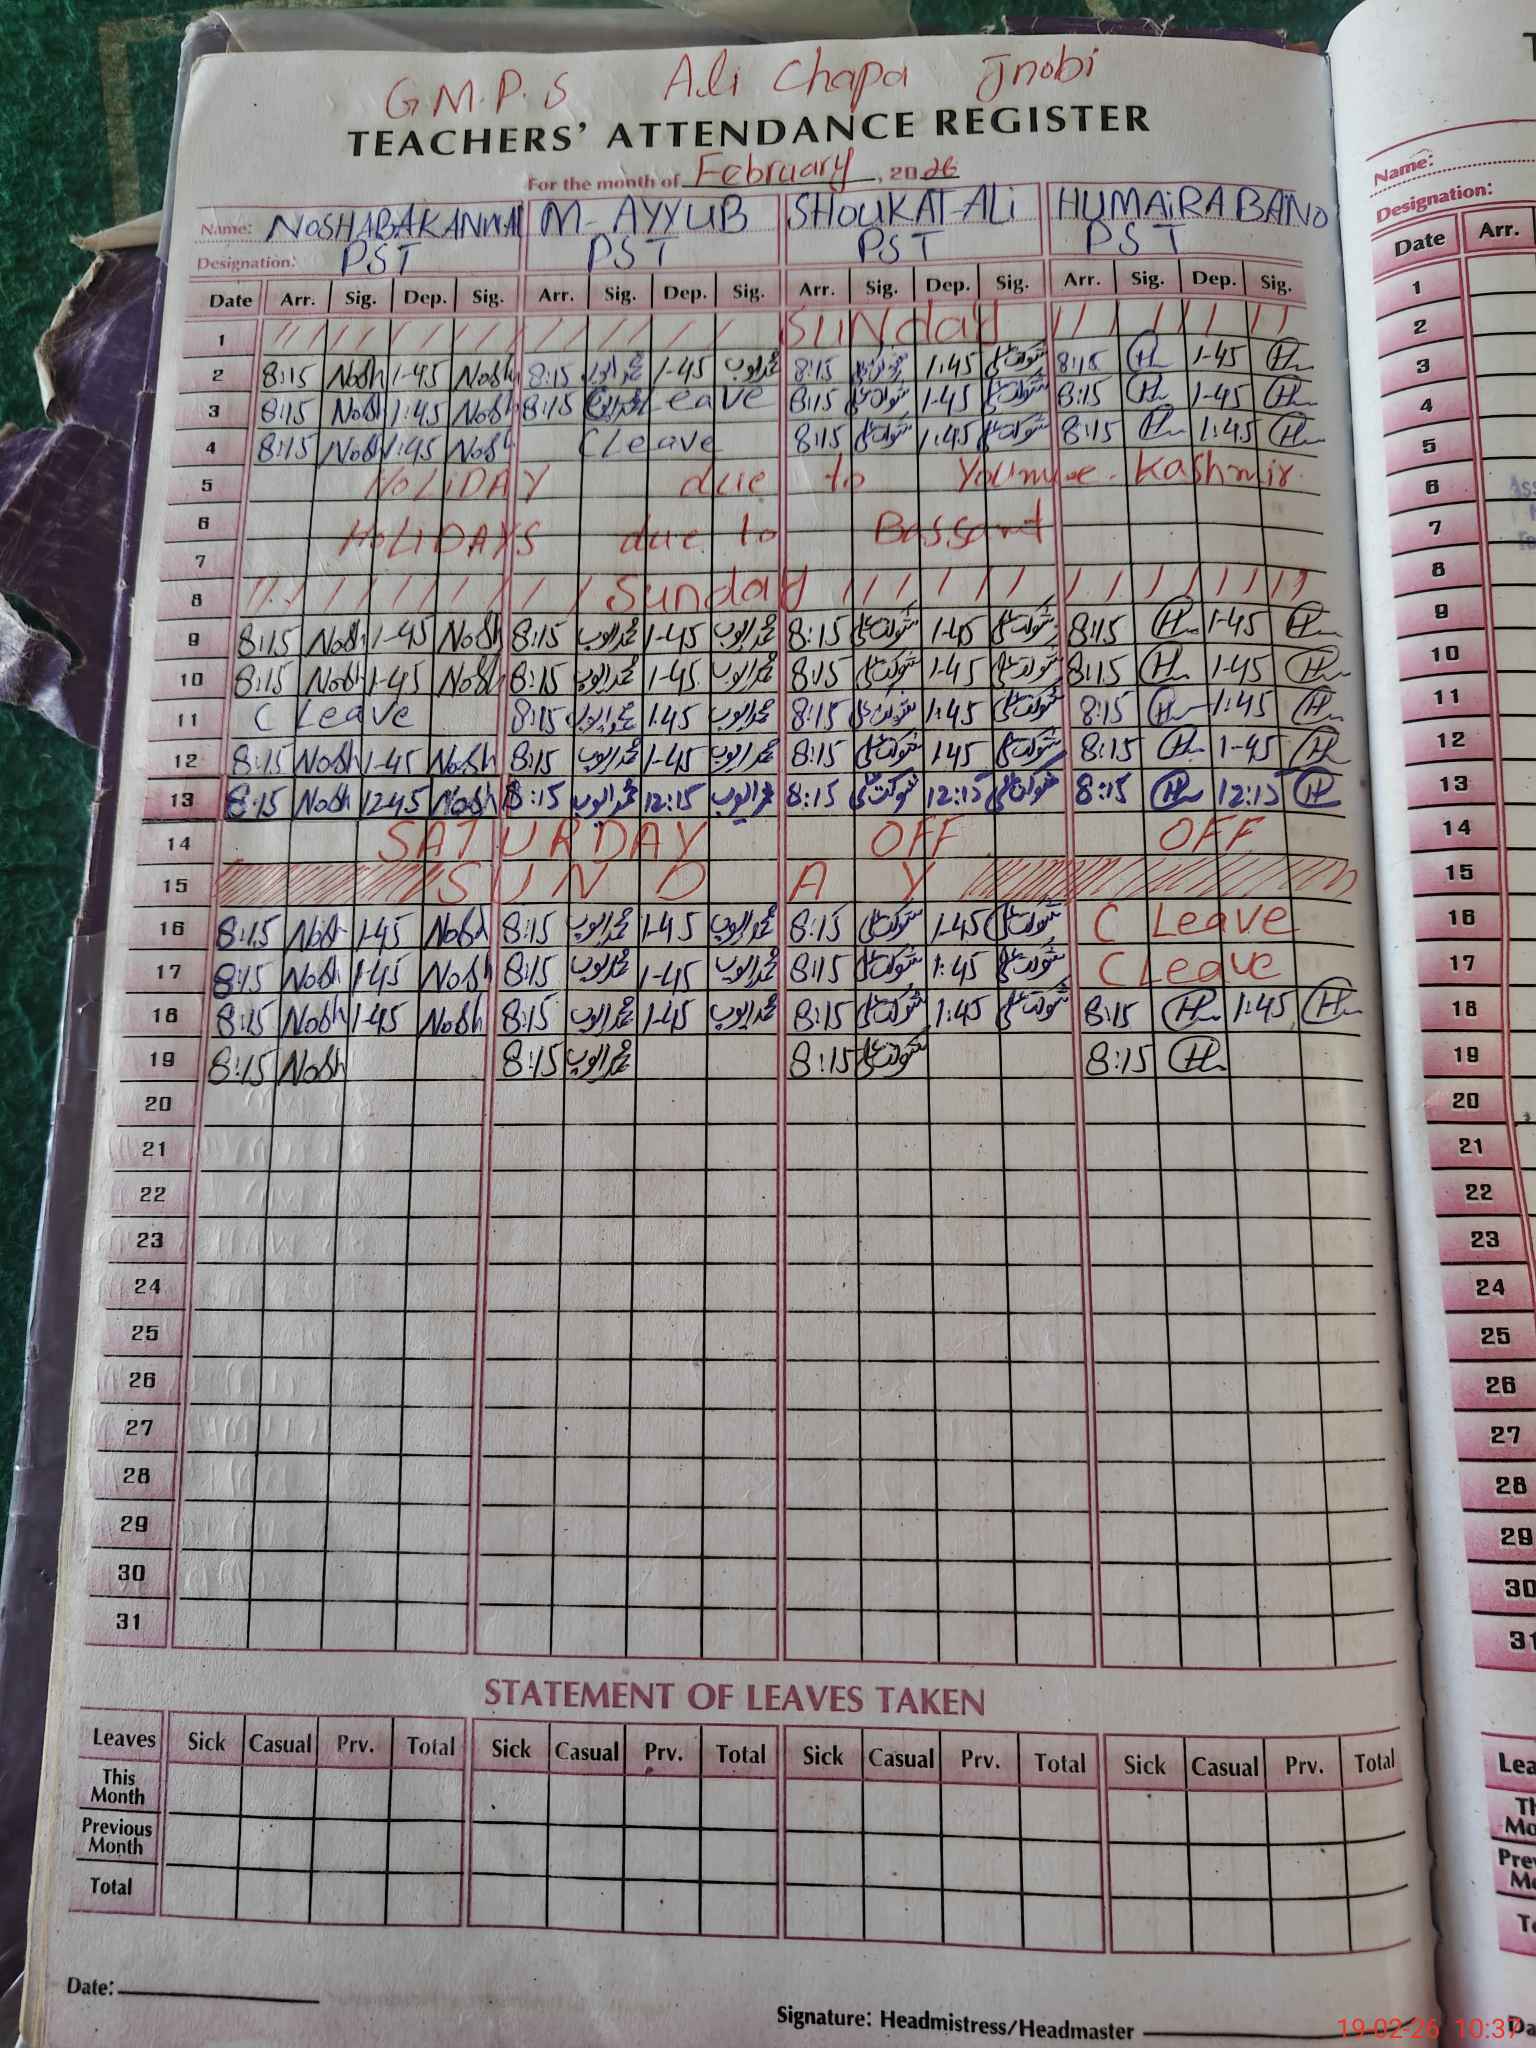 G.M.P.S Ali Chapa Jnobi
TEACHERS' ATTENDANCE REGISTER
For the month of February, 2026
Name: NOSHABAKANWAL M-AYYUB SHOUKAT-ALi HUMAiRA BANO
Designation: PST PST PST PST
Date Arr. Sig. Dep. Sig. Arr. Sig. Dep. Sig. Arr. Sig. Dep. Sig. Arr. Sig. Dep. Sig.
1 SUNday
2 8:15 Nosh 1-45 Nosh 8:15 محمد ایوب 1-45 محمد ایوب 8:15 شوکت علی 1:45 شوکت علی 8:15 H 1-45 H
3 8:15 Nosh 1:45 Nosh 8:15 Leave 8:15 شوکت علی 1-45 شوکت علی 8:15 H 1-45 H
4 8:15 Nosh 1:45 Nosh C Leave 8:15 شوکت علی 1:45 شوکت علی 8:15 H 1:45 H
5 HOLiDAY due to Youm-e-Kashmir.
6 HOLIDAYS due to Bassant
7
8 Sunday
9 8:15 Nosh 1-45 Nosh 8:15 محمد ایوب 1-45 محمد ایوب 8:15 شوکت علی 1-45 شوکت علی 8:15 H 1-45 H
10 8:15 Nosh 1-45 Nosh 8:15 محمد ایوب 1-45 محمد ایوب 8:15 شوکت علی 1-45 شوکت علی 8:15 H 1-45 H
11 C Leave 8:15 محمد ایوب 1:45 محمد ایوب 8:15 شوکت علی 1:45 شوکت علی 8:15 H 1:45 H
12 8:15 Nosh 1-45 Nosh 8:15 محمد ایوب 1-45 محمد ایوب 8:15 شوکت علی 1:45 شوکت علی 8:15 H 1-45 H
13 8:15 Nosh 12:45 Nosh 8:15 محمد ایوب 12:15 محمد ایوب 8:15 شوکت علی 12:15 شوکت علی 8:15 H 12:15 H
14 SATURDAY OFF OFF
15 SUNDAY
16 8:15 Nosh 1-45 Nosh 8:15 محمد ایوب 1-45 محمد ایوب 8:15 شوکت علی 1-45 شوکت علی C Leave
17 8:15 Nosh 1-45 Nosh 8:15 محمد ایوب 1-45 محمد ایوب 8:15 شوکت علی 1:45 شوکت علی C Leave
18 8:15 Nosh 1-45 Nosh 8:15 محمد ایوب 1-45 محمد ایوب 8:15 شوکت علی 1:45 شوکت علی 8:15 H 1:45 H
19 8:15 Nosh 8:15 محمد ایوب 8:15 شوکت علی 8:15 H
20
21
22
23
24
25
26
27
28
29
30
31
STATEMENT OF LEAVES TAKEN
Leaves Sick Casual Prv. Total Sick Casual Prv. Total Sick Casual Prv. Total Sick Casual Prv. Total
This Month
Previous Month
Total
Date:
Signature: Headmistress/Headmaster
Name:
Designation:
Date Arr.
1
2
3
4
5
6
7
8
9
10
11
12
13
14
15
16
17
18
19
20
21
22
23
24
25
26
27
28
29
30
31
19-02-26 10:37